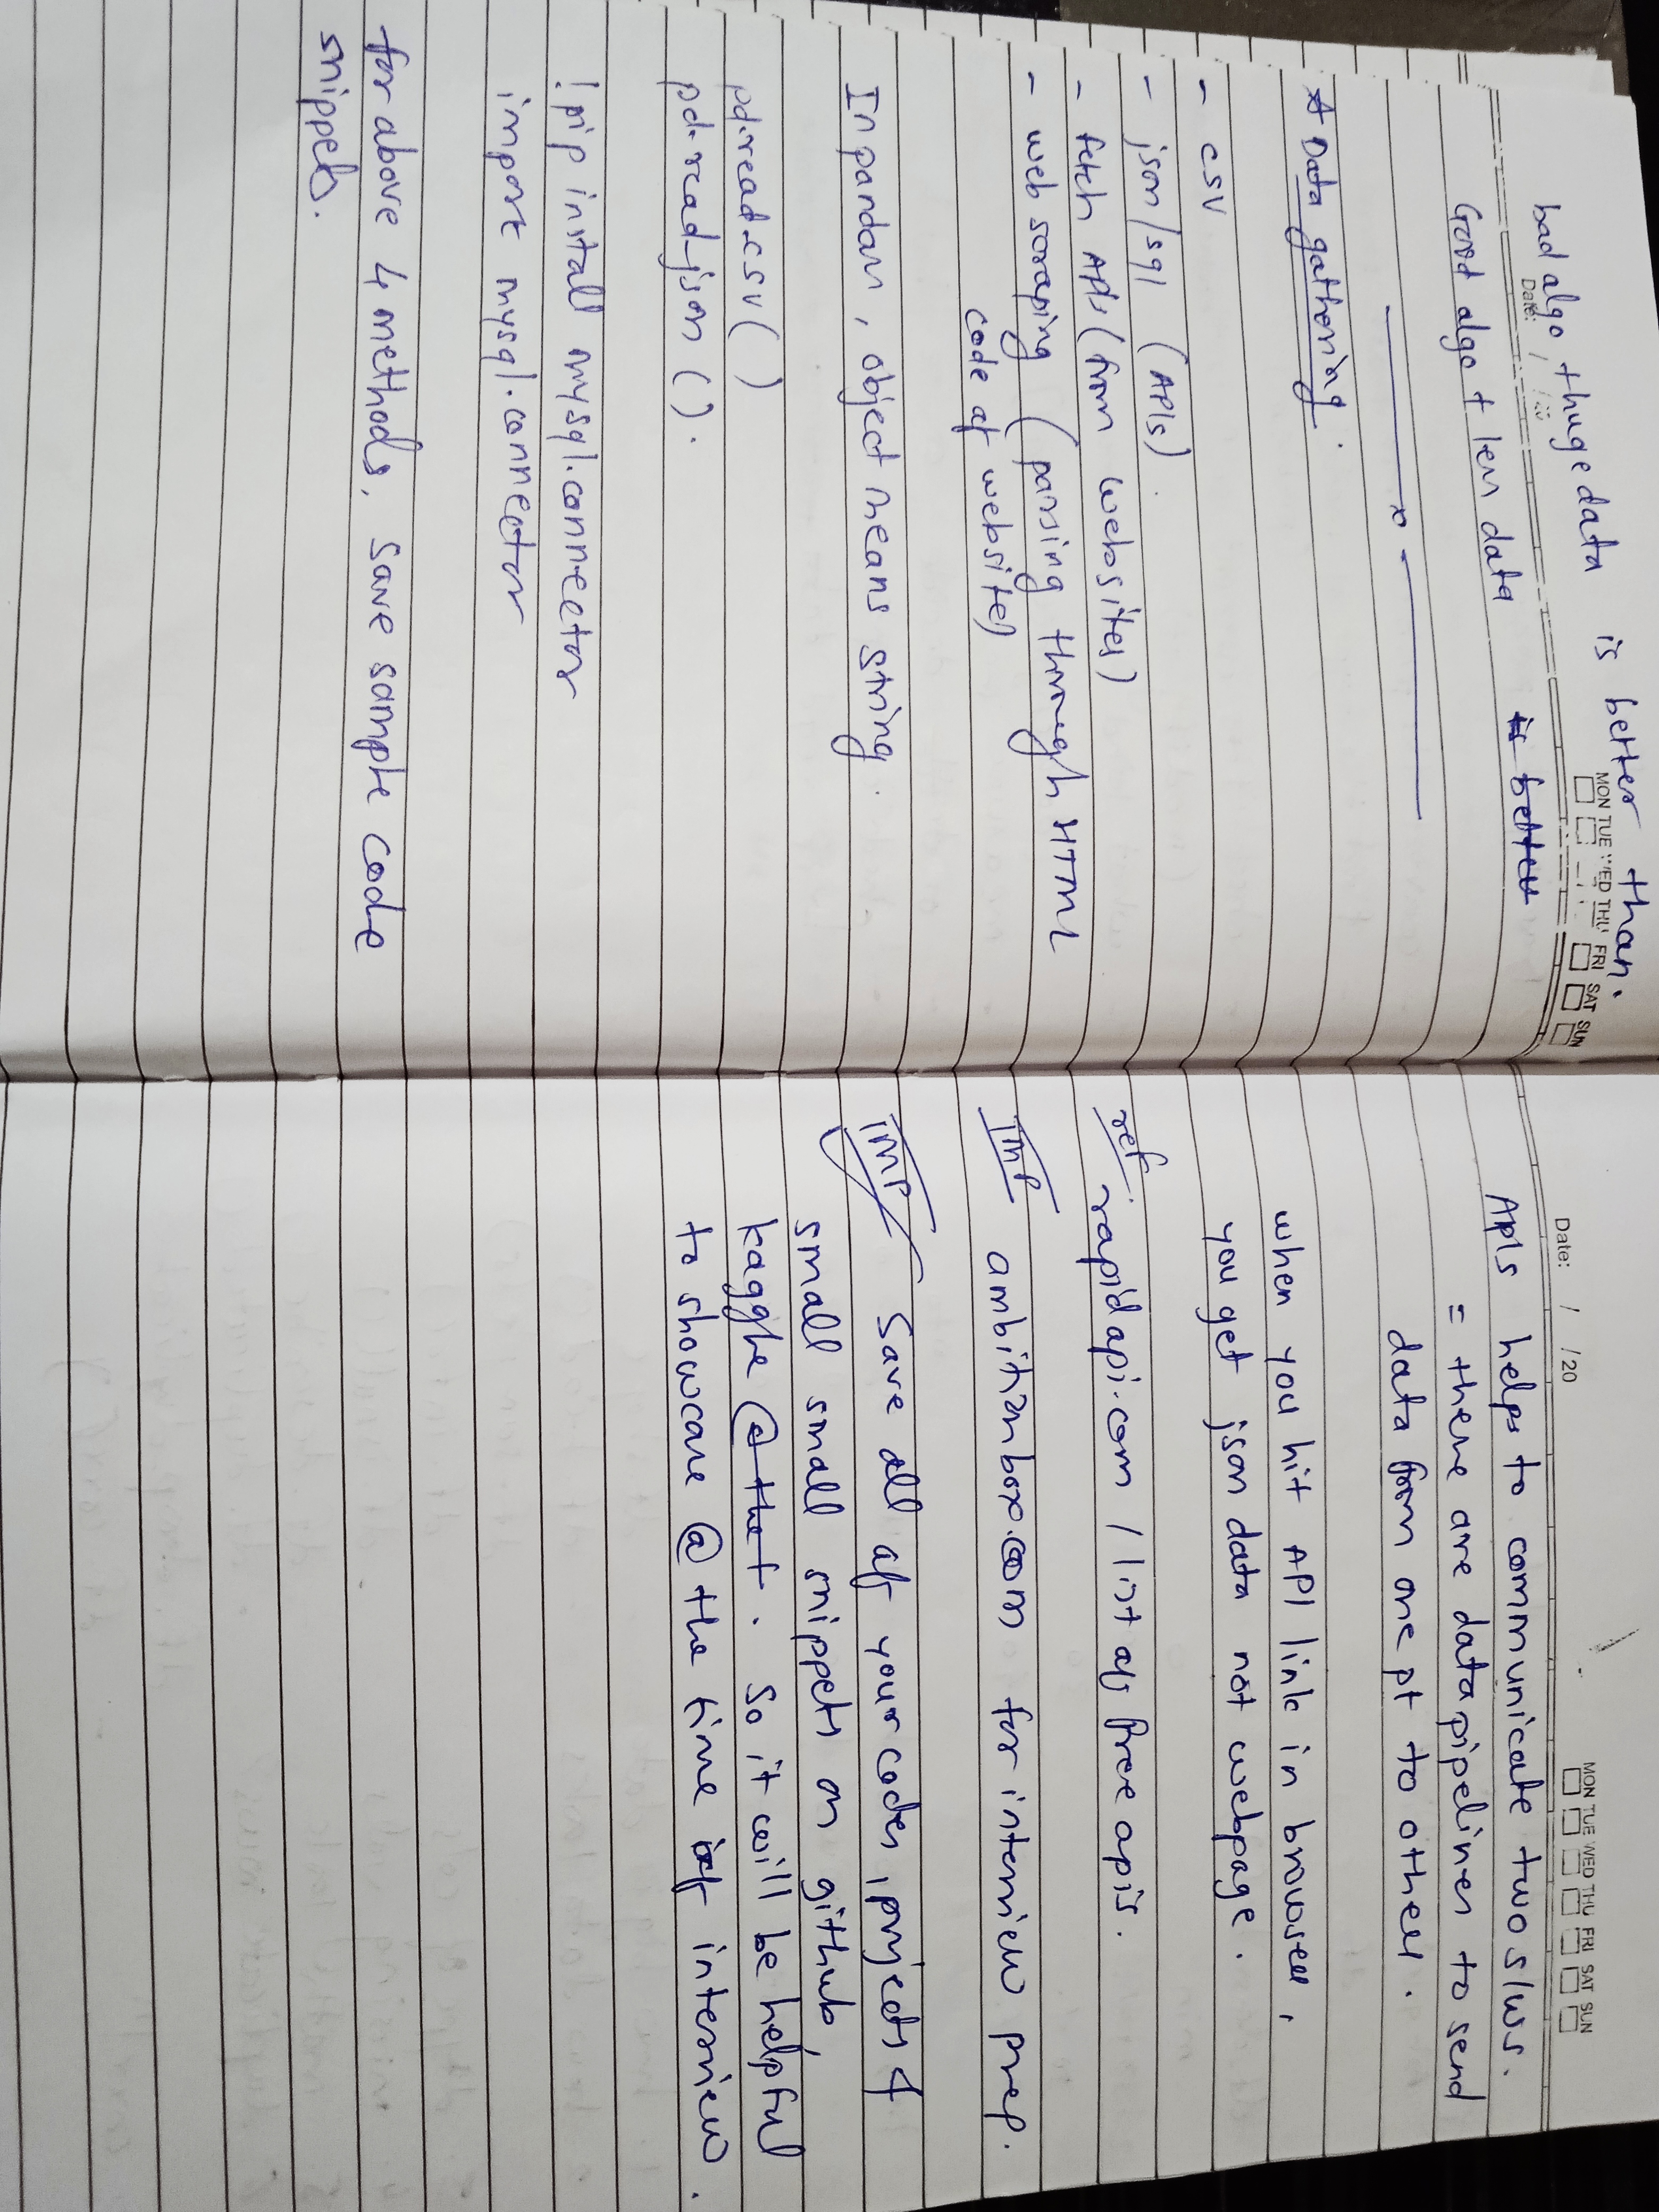 bad algo + huge data is better than.
Date: / /20
MON TUE WED THU FRI SAT SUN
Good algo + less data is better
x
* Data gathering.
- csv
- json/sql (APIs).
- fetch APIs (from websites)
- web scraping (parsing through HTML
code of website)
In pandas, object means string.
pd.read_csv( )
pd.read_json ( ).
!pip install mysql.connector
import mysql.connector
for above 4 methods, save sample code
snippets.
Date: / /20
MON TUE WED THU FRI SAT SUN
APIs helps to communicate two s/ws.
= there are data pipelines to send
data from one pt to other.
when you hit API link in browser,
you get json data not webpage.
ref rapidapi.com / list of free apis.
IMP ambitionbox.com for interview prep.
IMP Save all of your codes, projects &
small small snippets on github,
kaggle @ that. So it will be helpful
to showcase @ the time of interview.